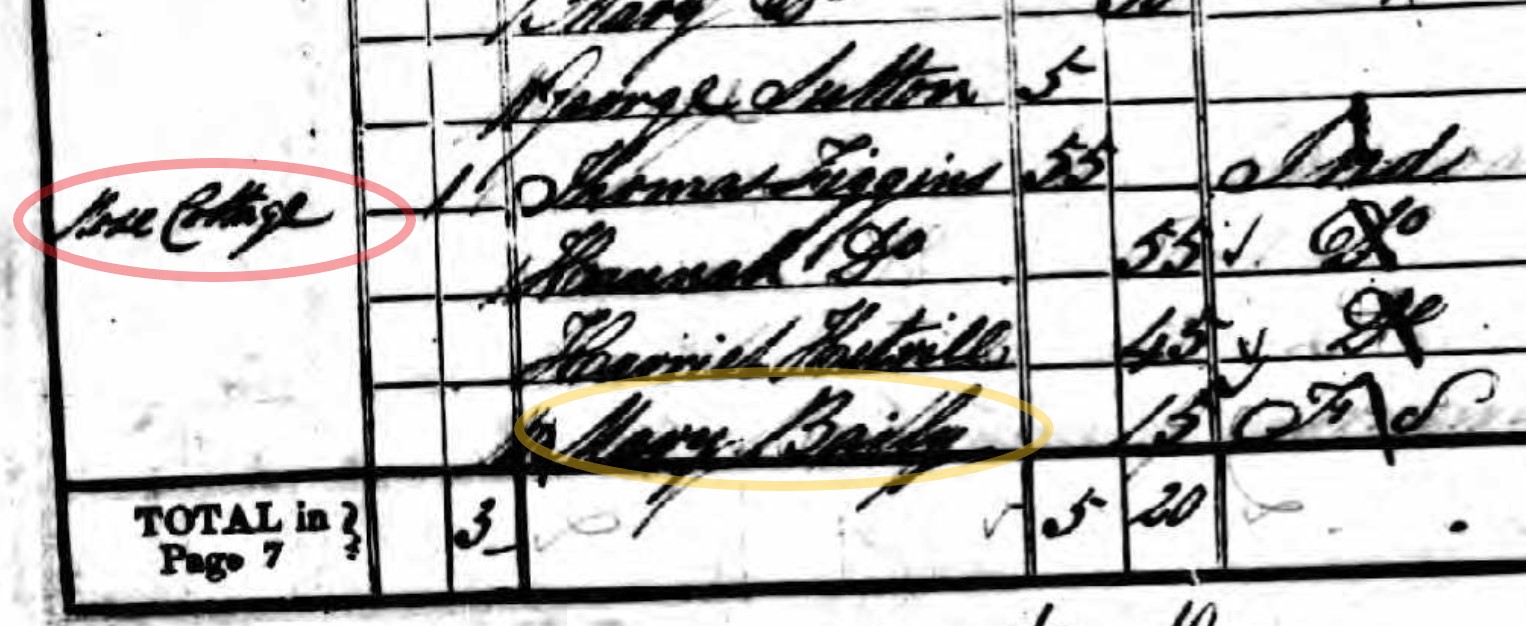 Mary Do
George Sutton 5
1 Thomas Figgins 55 Ind
Rose Cottage
Hannah Do 55 Do
Harriet 45 Do
Mary Baily 15 F S
TOTAL in
Page 7 3 5 20